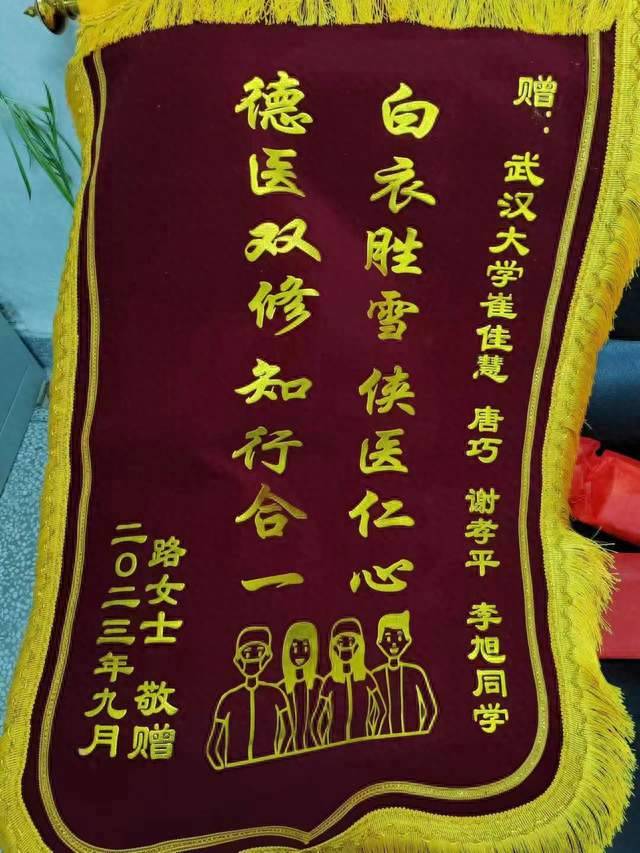 赠：武汉大学崔佳慧 唐巧 谢孝平 李旭同学
白衣胜雪 侠医仁心
德医双修 知行合一
路女士 敬赠
二〇二三年九月